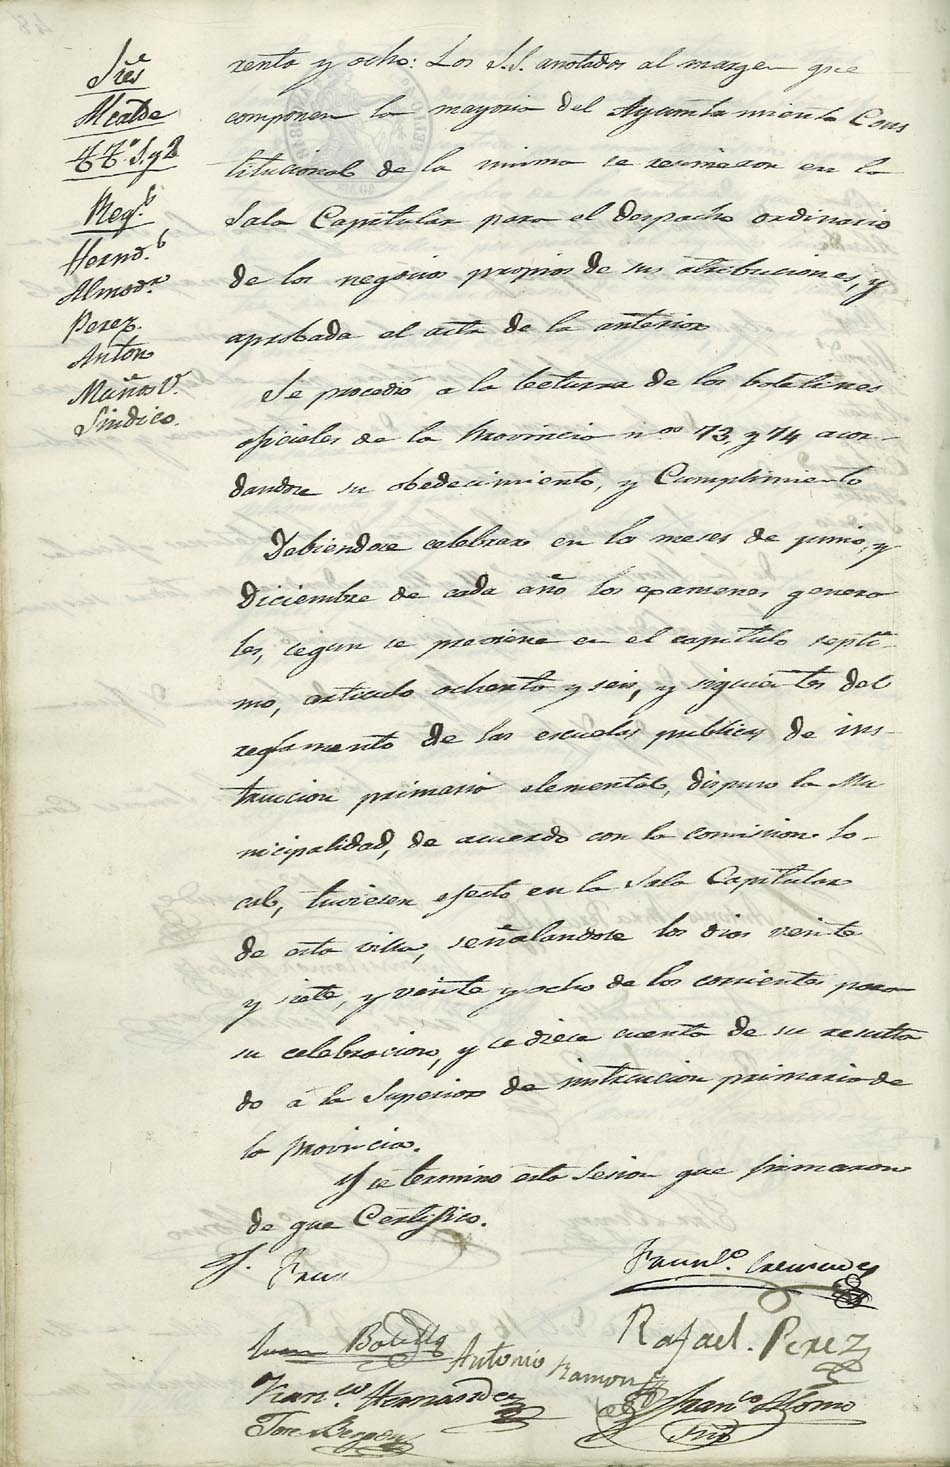 Sres
Alcalde
TTes 1º y 2
Regs
Hernz
Almodr
Perez.
Anton
Muñoz V.
Sindico.
renta y ocho: Los S.S. anotados al margen que
componen la mayoria del Ayuntamiento Cons
titucional de la misma se reunieron en la
Sala Capitular para el despacho ordinario
de los negocios propios de sus atribuciones, y
aprobada el acta de la anterior
Se procedió a la lectura de los boletines
oficiales de la Provincia nos 73, y 74 acor-
dandose su obedecimiento, y Cumplimiento
Debiendose celebrar en los meses de junio, y
Diciembre de cada año los examenes genera
les, segun se previene en el capitulo septi-
mo, articulo ochenta y seis, y siguientes del
reglamento de las escuelas publicas de ins-
truccion primaria elemental, dispuso la Mu
nicipalidad, de acuerdo con la comision lo-
cal, tuviesen efecto en la Sala Capitular
de esta villa, señalandose los dias veinte
y siete, y veinte y ocho de los corrientes para
su celebracion, y se diese cuenta de su resulta
do á la Superior de instruccion primaria de
la provincia.
Y se termino esta Sesion que firmaron
de que Certifico.
Juan Botella
Rafael. Perez
Antonio Ramon
Franco Hernandez
Franco Alorno